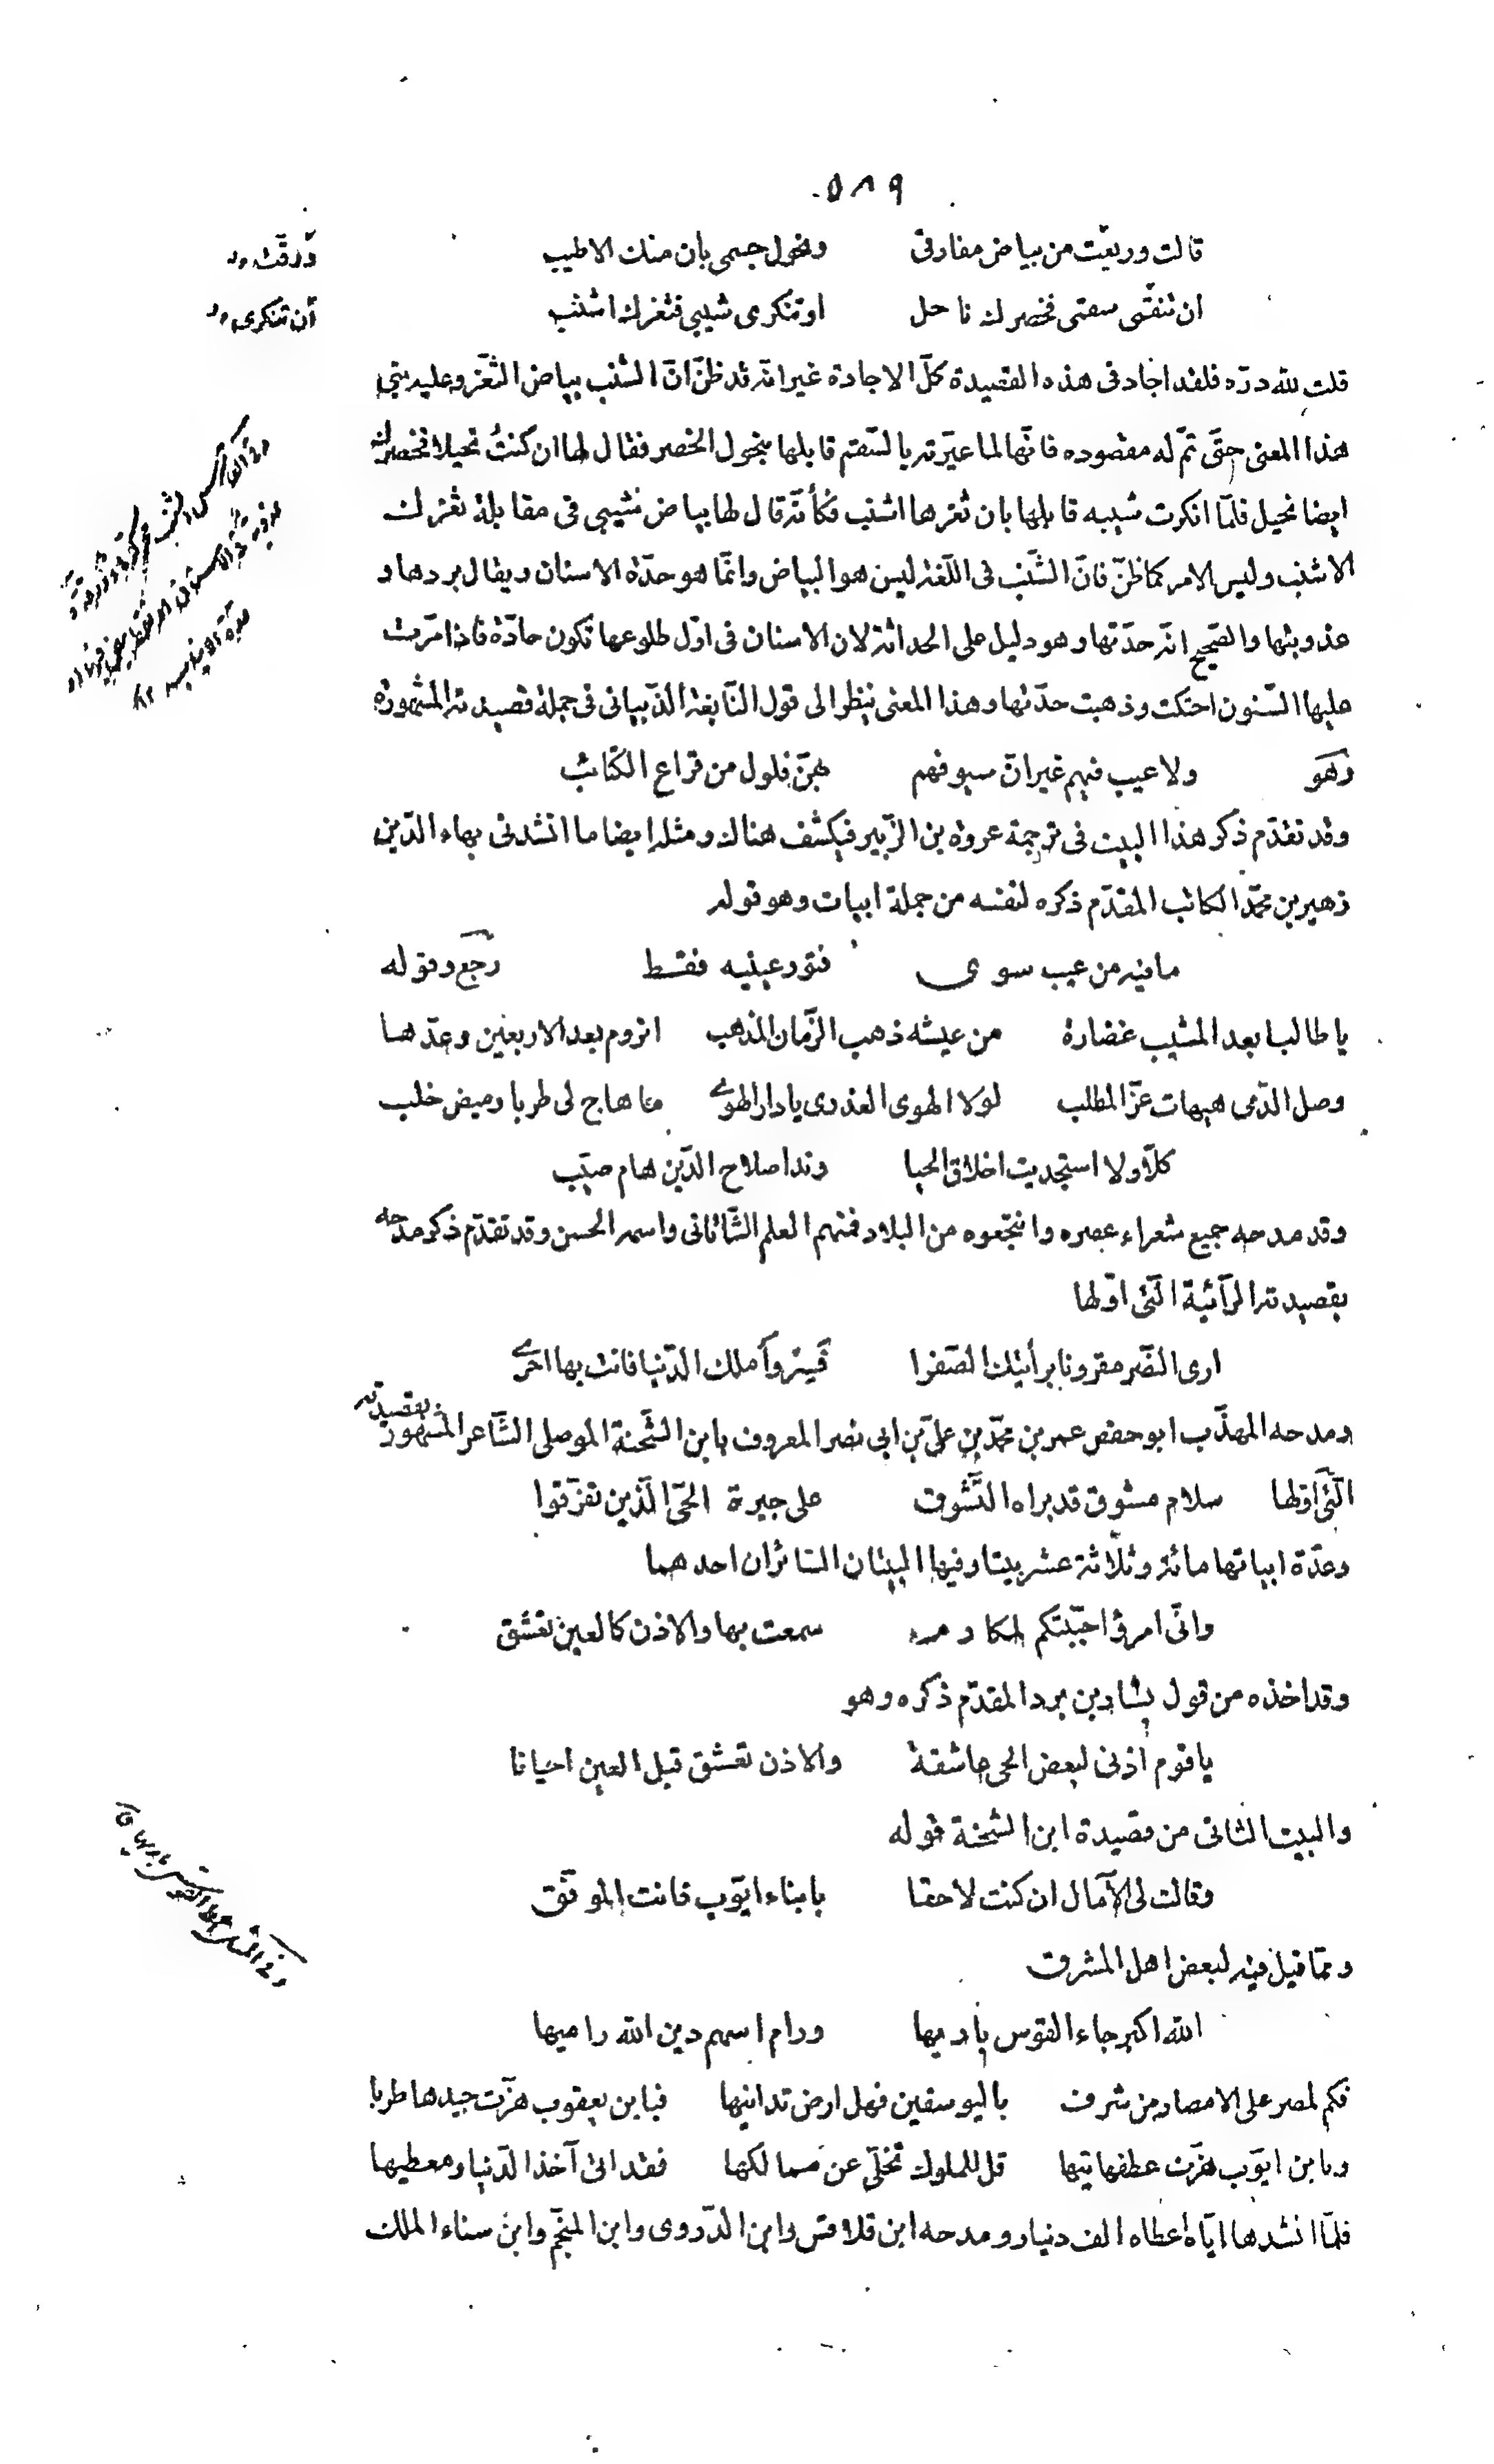 ٥٨٩
قالت وريعت من بياض مفارقى ونحول جسمى بان منك الاطيب
ورقّت
ان تنقمى سقمى فخصرك ناحل او تنكرى شيبى فثغرك اشنب
ان تنكرى
قلت لله درّه فلقد اجاد فى هذه القصيدة كلّ الاجادة غير انّه قد ظنّ انّ الشنب بياض الثّغر وعليه بنى
هذا المعنى حتّى تمّ له مقصوده فانّها لما عيّرته بالسّقم قابلها بنحول الخصر فقال لها ان كنتُ نحيلا فخصرك
ايضا نحيل فلمّا انكرت شيبه قابلها بان ثغرها اشنب فكأنّه قال لها بياض شيبى فى مقابلة ثغرك
الاشنب وليس الامر كما ظنّ فانّ الشّنب فى اللّغة ليس هو البياض وانّما هو حدّة الاسنان ويقال بردها و
عذوبتها والصّحيح انّه حدّتها وهو دليل على الحداثة لان الاسنان فى اوّل طلوعها تكون حادّة فاذا مرّت
عليها السّنون احتكت وذهبت حدّتها وهذا المعنى ينظر الى قول النّابغة الذّبيانى فى جملة قصيدته المشهورة
وهو ولا عيب فيهم غير انّ سيوفهم بهنّ فلول من قراع الكتائب
وقد تقدّم ذكر هذا البيت فى ترجمة عروة بن الزّبير فيكشف هناك ومثله ايضا ما انشدنى بهاء الدّين
زهير بن محمّد الكاتب المقدّم ذكره لنفسه من جملة ابيات وهو قوله
ما فيه من عيب سوى فتور عينيه فقط رجع وقوله
يا طالبا بعد المشيب غضارة من عيشه ذهب الزّمان المذهب اتروم بعد الاربعين وعدّها
وصل الدّمى هيهات عزّ المطلب لولا الهوى العذرى يا دار الهوى ما هاج لى طربا وميض خلب
كلّا ولا استجديت اخلاف الحيا وندا صلاح الدّين هام صيّب
وقد مدحه جميع شعراء عصره وانتجعوه من البلاد فمنهم العلم الشّاتانى واسمه الحسن وقد تقدّم ذكر مدحه
بقصيدته الرّآئية الّتى اوّلها
ارى النّصر مقرونا برأيتك الصّفرا فسر وأملك الدّنيا فانت بها احرى
ومدحه المهذّب ابو حفص عمر بن محمّد بن علىّ بن ابى نصر المعروف بابن الشّحنة الموصلى الشّاعر المشهور بقصيدته
الّتى اوّلها سلام مشوق قد براه التّشوق على جيرة الحىّ الّذين تفرّقوا
وعدّة ابياتها مائة وثلاثة عشر بيتا وفيها البيتان السّائران احدهما
وانّى امرؤ احببتكم لمكارم سمعت بها والاذن كالعين تعشق
وقد اخذه من قول بشار بن برد المقدّم ذكره وهو
يا قوم اذنى لبعض الحى عاشقة والاذن تعشق قبل العين احيانا
والبيت الثانى من قصيدة ابن الشحنة قوله
وقالت لى الآمال ان كنت لاحقا بابناء ايّوب فانت الموفّق
وممّا قيل فيه لبعض اهل المشرق
الله اكبر جاء القوس باريها ورام اسهم دين الله راميها
فكم لمصر على الامصار من شرف باليوسفين فهل ارض تدانيها فبابن يعقوب هزّت جيدها طربا
وبابن ايّوب هزّت عطفها تيها قل للملوك تخلّى عن ممالكها فقد اتى آخذ الدّنيا ومعطيها
فلمّا انشدها ايّاه اعطاه الف دينار ومدحه ابن قلاقس وابن الذّروى وابن المنجّم وابن سناء الملك